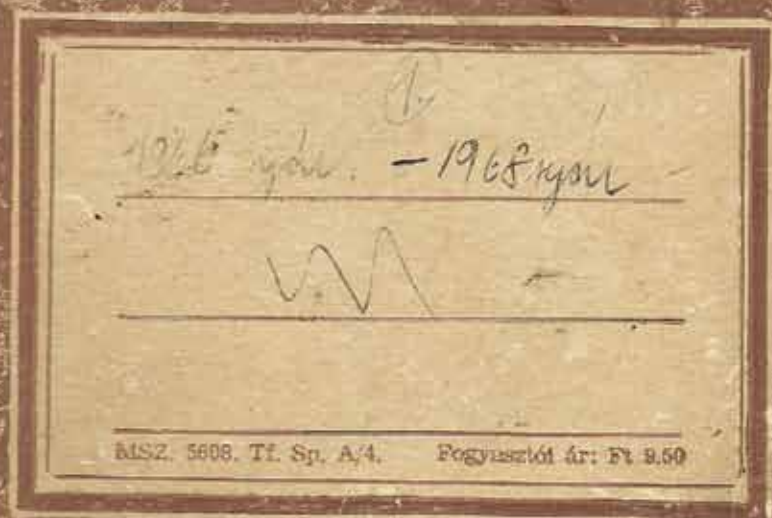 1.
1966 nyár. - 1968 nyár
MSZ. 5608. Tf. Sp. A/4. Fogyasztói ár: Ft 9.50